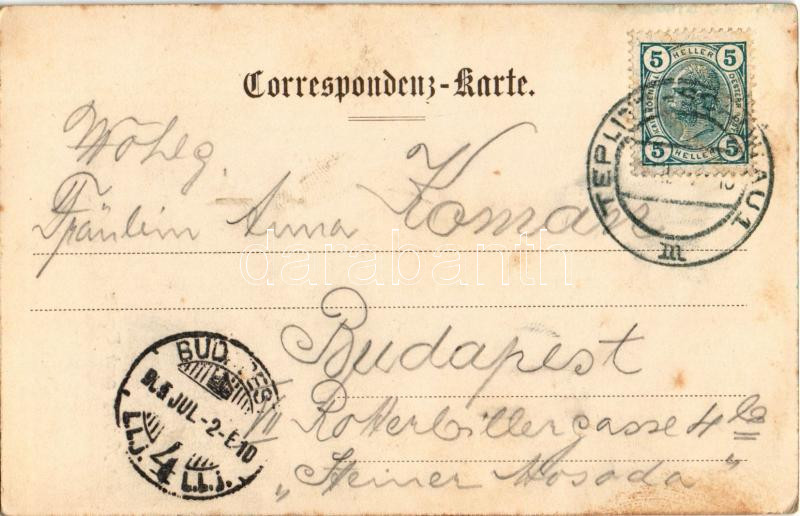 Correspondenz-Karte.
5 HELLER 5
5 HELLER 5
TEPLI
AU 1
m
Wohlg.
Fräulein Anna Koman
darabanth
Budapest
VII Rottenbillergasse 4
"Steiner Mosoda"
BUD ES
JUL -2-E10
4